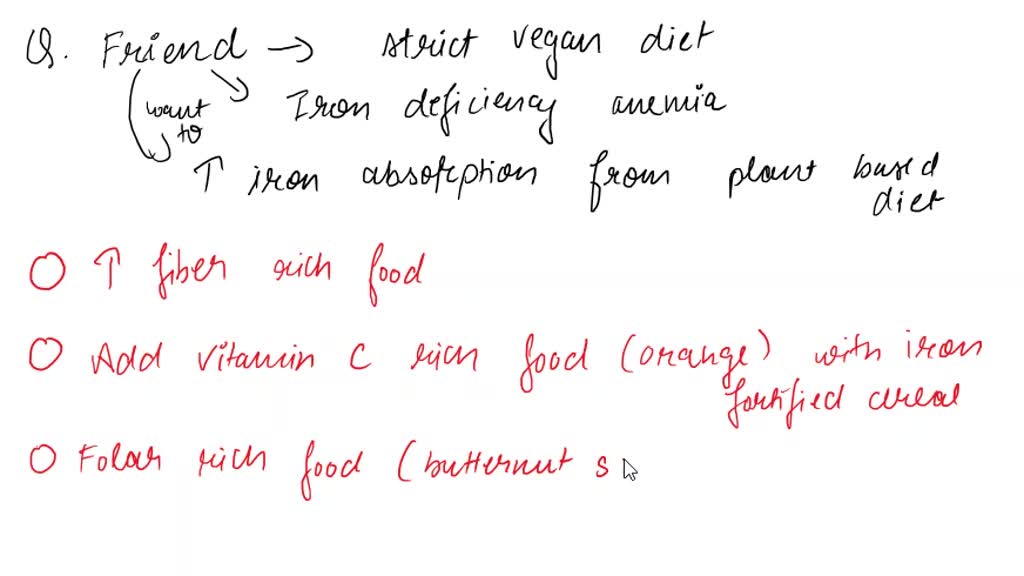 Q. Friend → strict vegan diet
want to
Iron deficiency anemia
↑ iron absorption from plant based diet
○ ↑ fiber rich food
○ Add vitamin C rich food (orange) with iron
fortified cereal
○ Folar rich food (butternut s